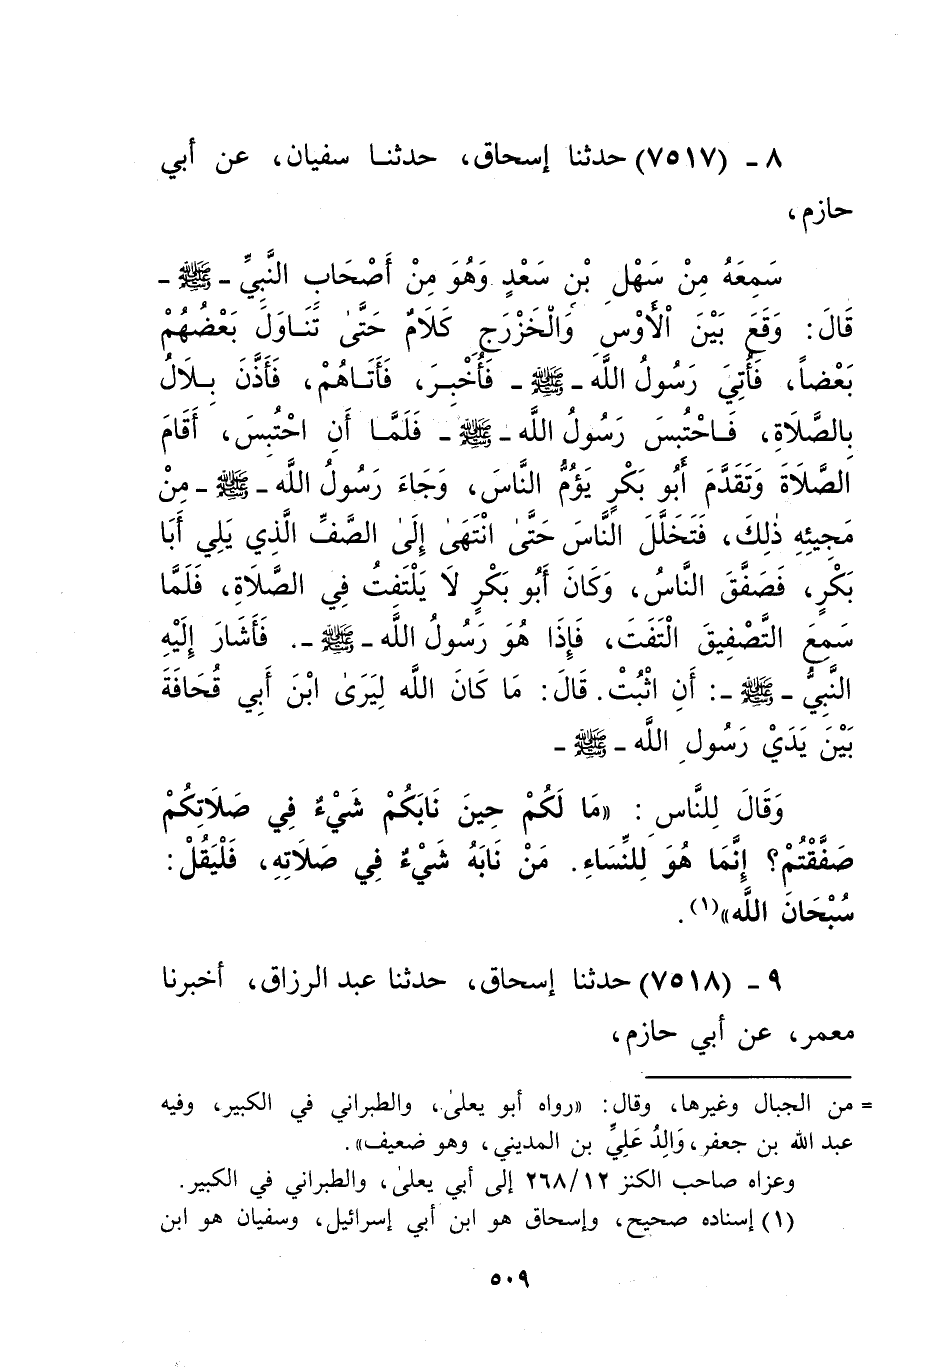 ٨ ـ (٧٥١٧) حدثنا إسحاق، حدثنـا سفيان، عن أبي
حازم،
سَمِعَهُ مِنْ سَهْلِ بْنِ سَعْدٍ وَهُوَ مِنْ أَصْحَابِ النَّبِيِّ ـ ﷺ ـ
قَالَ: وَقَعَ بَيْنَ الْأَوْسِ وَالْخَزْرَجِ كَلَامٌ حَتَّىٰ تَنَـاوَلَ بَعْضُهُمْ
بَعْضاً، فَأُتِيَ رَسُولُ اللَّه ـ ﷺ ـ فَأُخْبِـرَ، فَأَتَاهُمْ، فَأَذَّنَ بِـلَالُ
بِالصَّلَاةِ، فَـاحْتُبِسَ رَسُولُ اللَّه ـ ﷺ ـ فَلَمَّـا أَنِ احْتُبِسَ، أَقَامَ
الصَّلَاةَ وَتَقَدَّمَ أَبُو بَكْرٍ يَؤُمُّ النَّاسَ، وَجَاءَ رَسُولُ اللَّه ـ ﷺ ـ مِنْ
مَجِيئِهِ ذٰلِكَ، فَتَخَلَّلَ النَّاسَ حَتَّىٰ انْتَهَىٰ إِلَىٰ الصَّفِّ الَّذِي يَلِي أَبَا
بَكْرٍ، فَصَفَّقَ النَّاسُ، وَكَانَ أَبُو بَكْرٍ لَا يَلْتَفِتُ فِي الصَّلَاةِ، فَلَمَّا
سَمِعَ التَّصْفِيقَ الْتَفَتَ، فَإِذَا هُوَ رَسُولُ اللَّه ـ ﷺ ـ. فَأَشَارَ إِلَيْهِ
النَّبِيُّ ـ ﷺ ـ: أَنِ اثْبُتْ. قَالَ: مَا كَانَ اللَّه لِيَرَىٰ ابْنَ أَبِي قُحَافَةَ
بَيْنَ يَدَيْ رَسُولِ اللَّه ـ ﷺ ـ
وَقَالَ لِلنَّاسِ: «مَا لَكُمْ حِينَ نَابَكُمْ شَيْءٌ فِي صَلَاتِكُمْ
صَفَّقْتُمْ؟ إِنَّمَا هُوَ لِلنِّسَاءِ. مَنْ نَابَهُ شَيْءٌ فِي صَلَاتِهِ، فَلْيَقُلْ:
سُبْحَانَ اللَّه»(١).
٩ ـ (٧٥١٨) حدثنا إسحاق، حدثنا عبد الرزاق، أخبرنا
معمر، عن أبي حازم،
= من الجبال وغيرها، وقال: «رواه أبو يعلىٰ، والطبراني في الكبير، وفيه
عبد الله بن جعفر، وَالِدُ عَلِيٍّ بن المديني، وهو ضعيف».
وعزاه صاحب الكنز ٢٦٨/١٢ إلى أبي يعلىٰ، والطبراني في الكبير.
(١) إسناده صحيح، وإسحاق هو ابن أبي إسرائيل، وسفيان هو ابن
٥٠٩